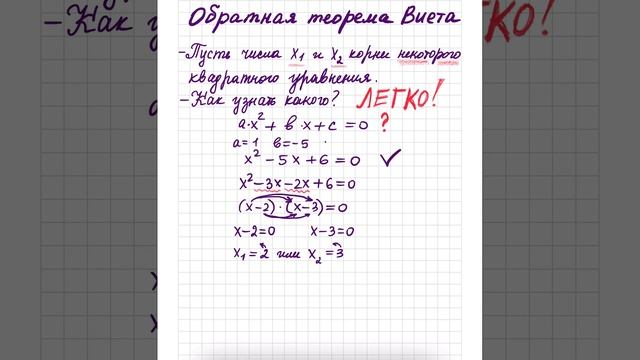 Обратная теорема Виета
-Пусть числа x₁ и x₂ корни некоторого
квадратного уравнения.
-Как узнать какого? ЛЕГКО!
a·x²+ в·x+c=0 ?
a=1 в=-5
x²-5x+6=0 ✓
x²-3x-2x+6=0
(x-2)·(x-3)=0
x-2=0 x-3=0
x₁=2 или x₂=3